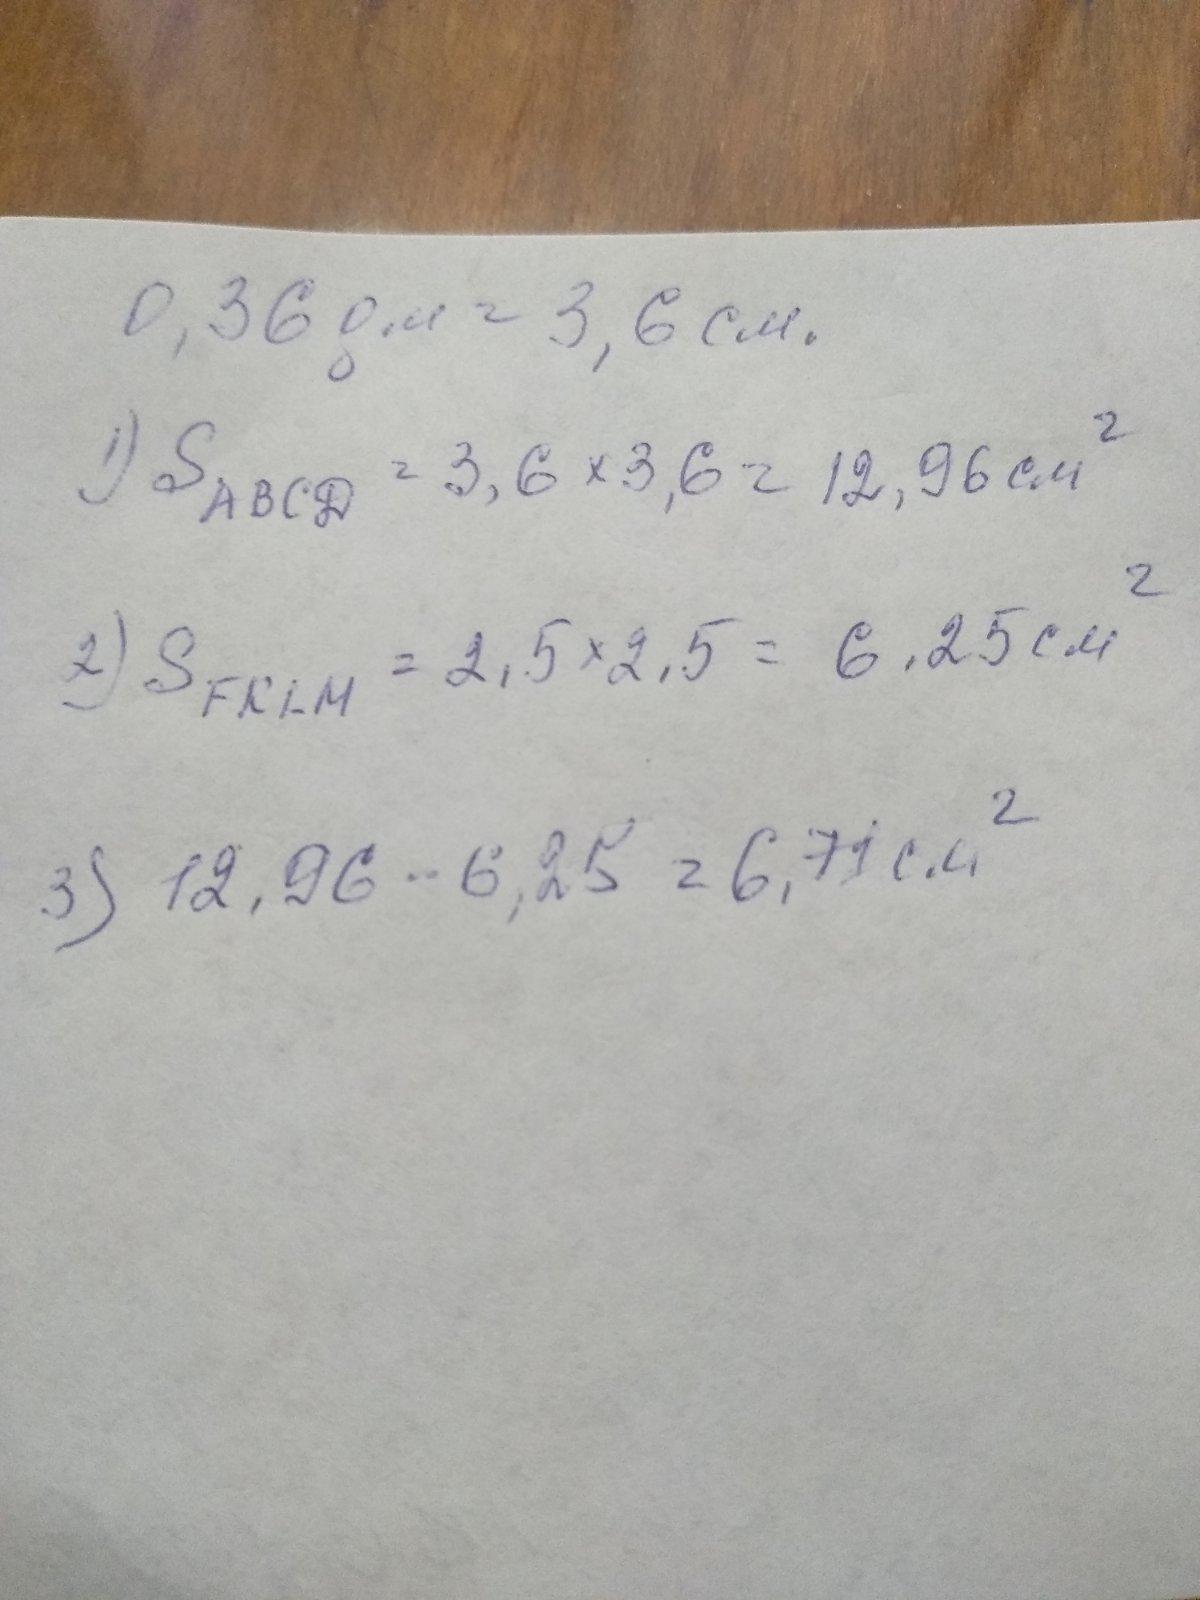 0,36 дм = 3,6 см.
1) S ABCD = 3,6 × 3,6 = 12,96 см²
2) S FKLM = 2,5 × 2,5 = 6,25 см²
3) 12,96 - 6,25 = 6,71 см²